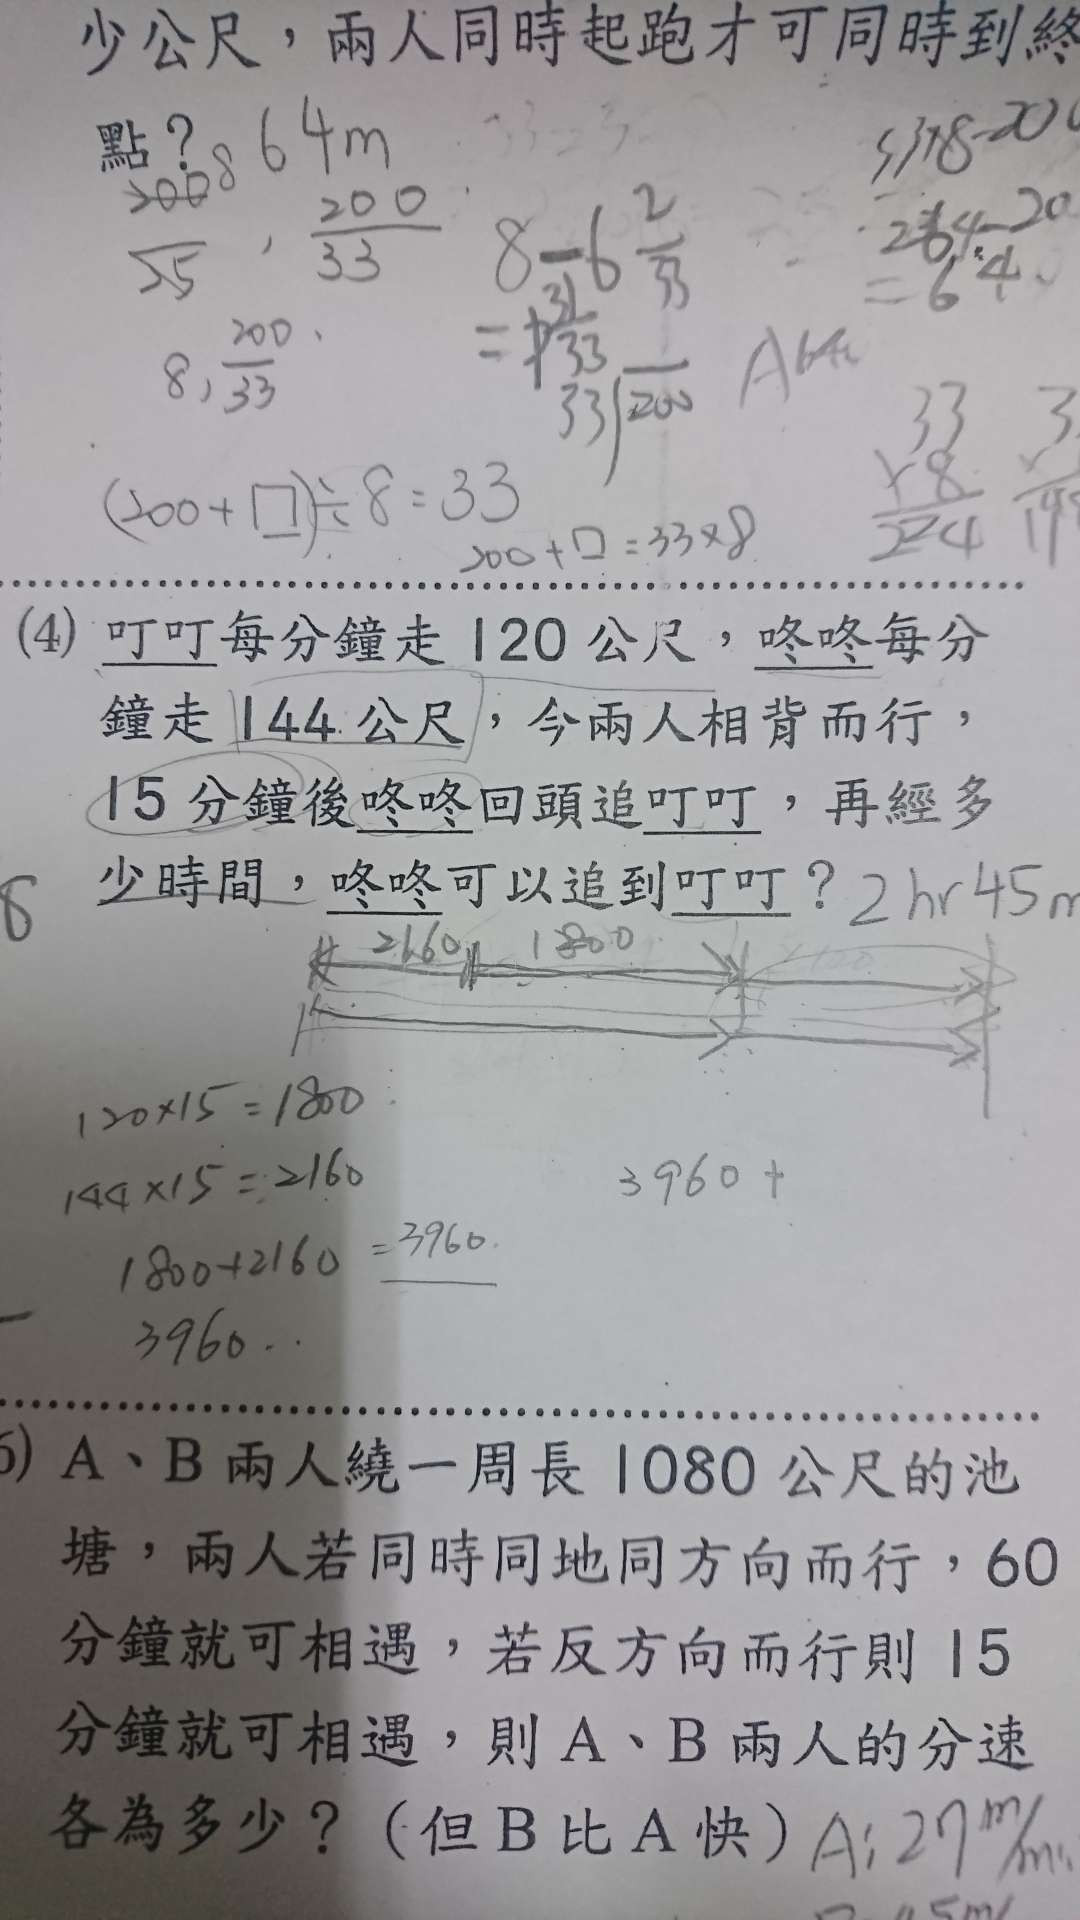 少公尺，兩人同時起跑才可同時到終
點？ 64m
200 8 200
25 , 33
8 - 6 2/33
= 1 31/33
8, 200/33
33 200
264-200
= 64
A 64
33
×8
264
(200+□)÷8=33
200+□=33×8
(4) 叮叮每分鐘走 120 公尺，咚咚每分
鐘走 144 公尺，今兩人相背而行，
15 分鐘後咚咚回頭追叮叮，再經多
少時間，咚咚可以追到叮叮？ 2hr 45m
8
2160 1800
120×15=1800
144×15=2160
3960+
1800+2160 =3960
3960
6) A、B 兩人繞一周長 1080 公尺的池
塘，兩人若同時同地同方向而行，60
分鐘就可相遇，若反方向而行則 15
分鐘就可相遇，則 A、B 兩人的分速
各為多少？（但 B 比 A 快） A: 27m/min